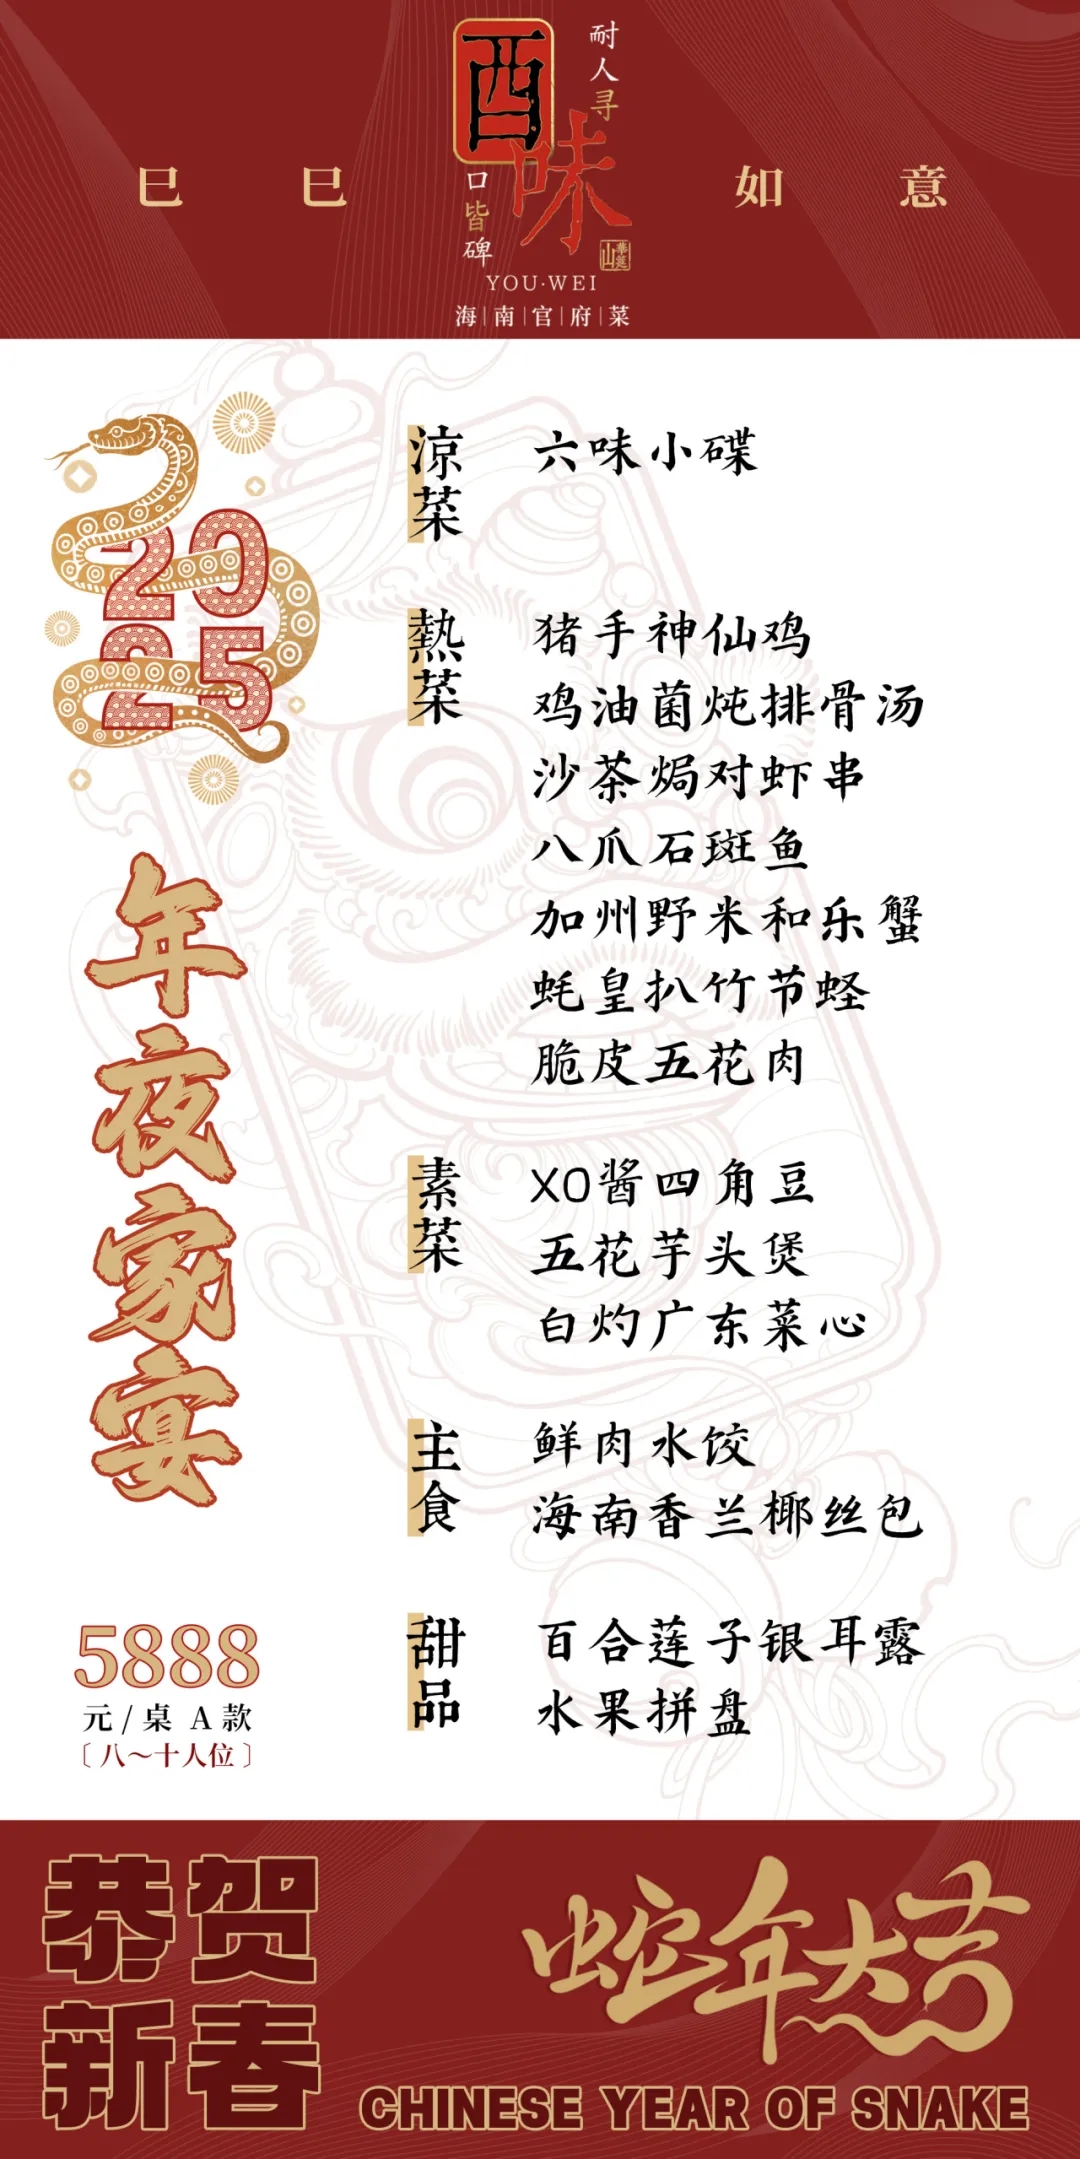 巳巳如意
酉味
耐人寻
口皆碑
華莚山
YOU·WEI
海|南|官|府|菜
2025
年夜家宴
5888
元/桌 A款
〔八～十人位〕
涼菜
六味小碟
熱菜
猪手神仙鸡
鸡油菌炖排骨汤
沙茶焗对虾串
八爪石斑鱼
加州野米和乐蟹
蚝皇扒竹节蛏
脆皮五花肉
素菜
XO酱四角豆
五花芋头煲
白灼广东菜心
主食
鲜肉水饺
海南香兰椰丝包
甜品
百合莲子银耳露
水果拼盘
恭贺新春
蛇年大吉
CHINESE YEAR OF SNAKE